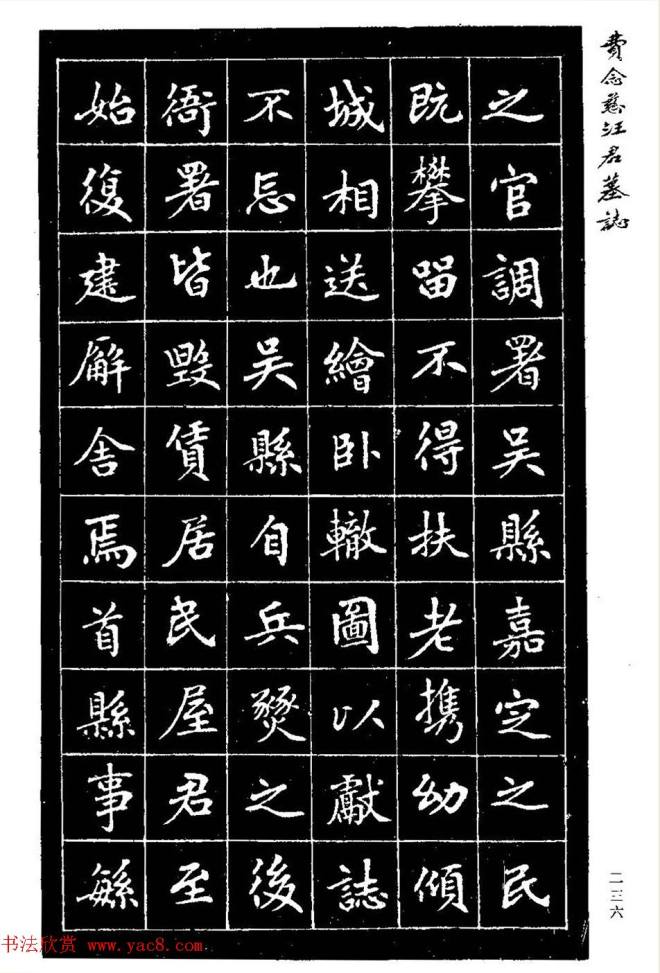 費念慈汪君墓誌
之官調署吳縣嘉定之民
既攀留不得扶老攜幼傾
城相送繪卧轍圖以獻誌
不忘也吳縣自兵燹之後
衙署皆毀賃居民屋君至
始復建廨舍焉首縣事繇
二三六
书法欣赏 www.yac8.com